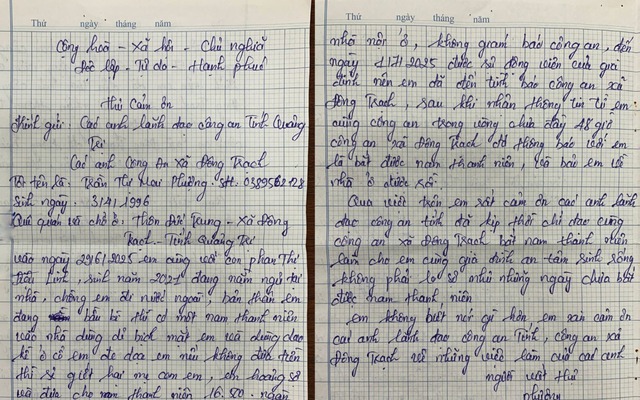 Thứ ngày tháng năm
Cộng hoà - xã hội - chủ nghĩa
Độc lập - Tự do - Hạnh phúc
Thư Cảm ơn
Kính gửi: Các anh lãnh đạo công an Tỉnh Quảng
Trị
Các anh Công An xã Đông Trạch
Tôi tên là: Trần Thị Mai Phương. Sđt: 0389562128
Sinh ngày: 3/4/1996
Quê quán và chỗ ở: Thôn Đức Trung - Xã Đông
Trạch - Tỉnh Quảng Trị
vào ngày 29/6/2025 em cùng với con phan Thị
Linh, sinh năm 2021 đang nằm ngủ tại
nhà, chồng em đi nước ngoài, bản thân em
đang bầu bì thì có một nam thanh niên
vào nhà dùng dí bịch mặt em và dùng dao
kề ở cổ em đe doạ em nếu không đưa tiền
thì sẽ giết hai mẹ con em, em hoảng sợ
và đưa cho nam thanh niên 16.500 ngàn
Thứ ngày tháng năm
nhà nội ở, không giám báo công an, đến
ngày 1/7/2025 được sự động viên của gia
đình nên em đã đến trình báo công an xã
Đông Trạch, sau khi nhận thông tin từ em
cùng công an trong vòng chưa đầy 48 giờ
công an xã Đông Trạch đã thông báo với em
là bắt được nam thanh niên, và báo em về
nhà ở được rồi.
Qua việc trên em rất cảm ơn các anh lãnh
đạo công an tỉnh đã kịp thời chỉ đạo cùng
công an xã Đông Trạch bắt nam thanh niên
làm cho em cùng gia đình an tâm sinh sống
không phải lo sợ như những ngày chưa bắt
được nam thanh niên
em không biết nói gì hơn em xin cảm ơn
các anh lãnh đạo công an Tỉnh, công an xã
Đông Trạch về những việc làm của các anh
người viết thư
phương